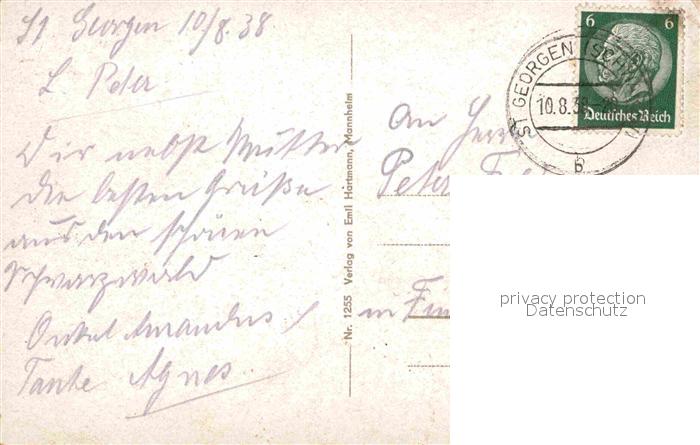 St Georgen 10/8.38
L. Peter
Dir nebst Mutter
die besten Grüße
aus dem schönen
Schwarzwald
Onkel Amandus
Tante Agnes
Nr. 1255 Verlag von Emil Hartmann, Mannheim
6 6
Deutsches Reich
ST GEORGEN (SCHW
10.8.38
b
An Herrn
Peter
in
privacy protection
Datenschutz